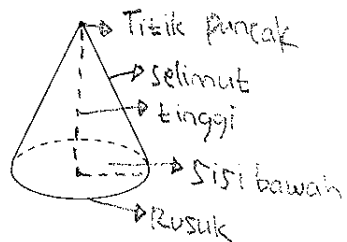 Titik puncak
selimut
tinggi
Sisi bawah
Rusuk